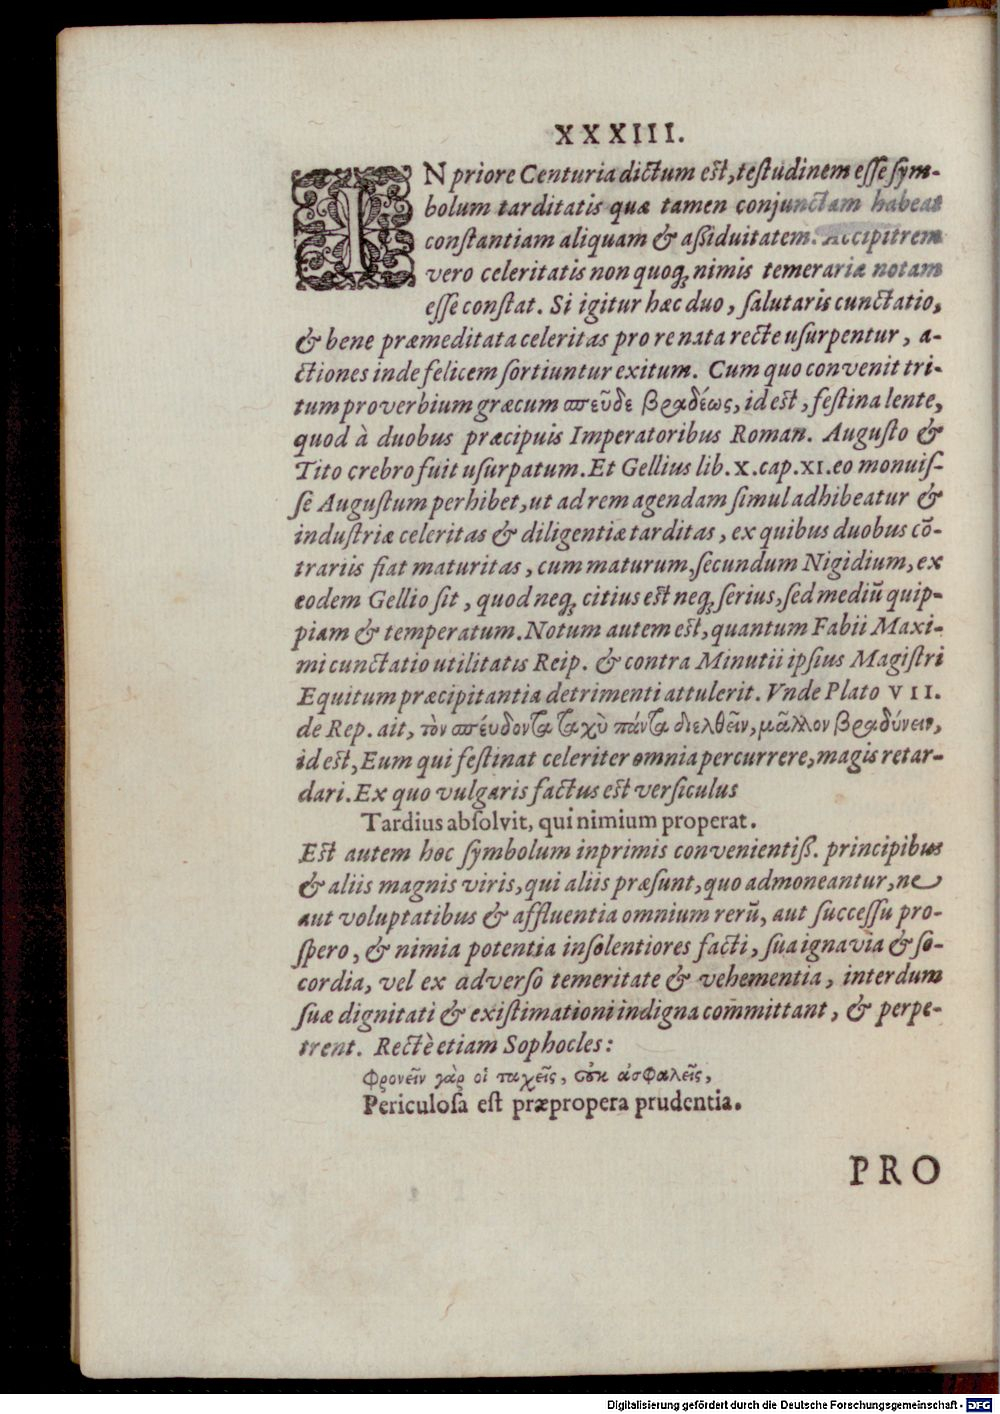 XXXIII.
IN priore Centuria dictum est, testudinem esse sym-
bolum tarditatis quæ tamen conjunctam habeat
constantiam aliquam & aßiduitatem. Accipitrem
vero celeritatis non quoqꝫ nimis temerariæ notam
esse constat. Si igitur hæc duo, salutaris cunctatio,
& bene præmeditata celeritas pro re nata recte usurpentur, a-
ctiones inde felicem sortiuntur exitum. Cum quo convenit tri-
tum proverbium græcum σπεῦδε βραδέως, id est, festina lente,
quod à duobus præcipuis Imperatoribus Roman. Augusto &
Tito crebro fuit usurpatum. Et Gellius lib. X. cap. XI. eo monuis-
se Augustum perhibet, ut ad rem agendam simul adhibeatur &
industriæ celeritas & diligentiæ tarditas, ex quibus duobus cō-
trariis fiat maturitas, cum maturum, secundum Nigidium, ex
eodem Gellio sit, quod neqꝫ citius est neqꝫ serius, sed mediū quip-
piam & temperatum. Notum autem est, quantum Fabii Maxi-
mi cunctatio utilitatis Reip. & contra Minutii ipsius Magistri
Equitum præcipitantia detrimenti attulerit. Vnde Plato VII.
de Rep. ait, τὸν σπέυδοντα ταχὺ πάντα διελθεῖν, μᾶλλον βραδύνειν,
id est, Eum qui festinat celeriter omnia percurrere, magis retar-
dari. Ex quo vulgaris factus est versiculus
Tardius absolvit, qui nimium properat.
Est autem hoc symbolum inprimis convenientiß. principibus
& aliis magnis viris, qui aliis præsunt, quo admoneantur, ne
aut voluptatibus & affluentia omnium rerū, aut successu pro-
spero, & nimia potentia insolentiores facti, sua ignavia & so-
cordia, vel ex adverso temeritate & vehementia, interdum
suæ dignitati & existimationi indigna com̄mittant, & perpe-
trent. Rectè etiam Sophocles:
Φρονεῖν γὰρ οἱ ταχεῖς, οὐκ ἀσφαλεῖς,
Periculosa est præpropera prudentia.
PRO
Digitalisierung gefördert durch die Deutsche Forschungsgemeinschaft - DFG